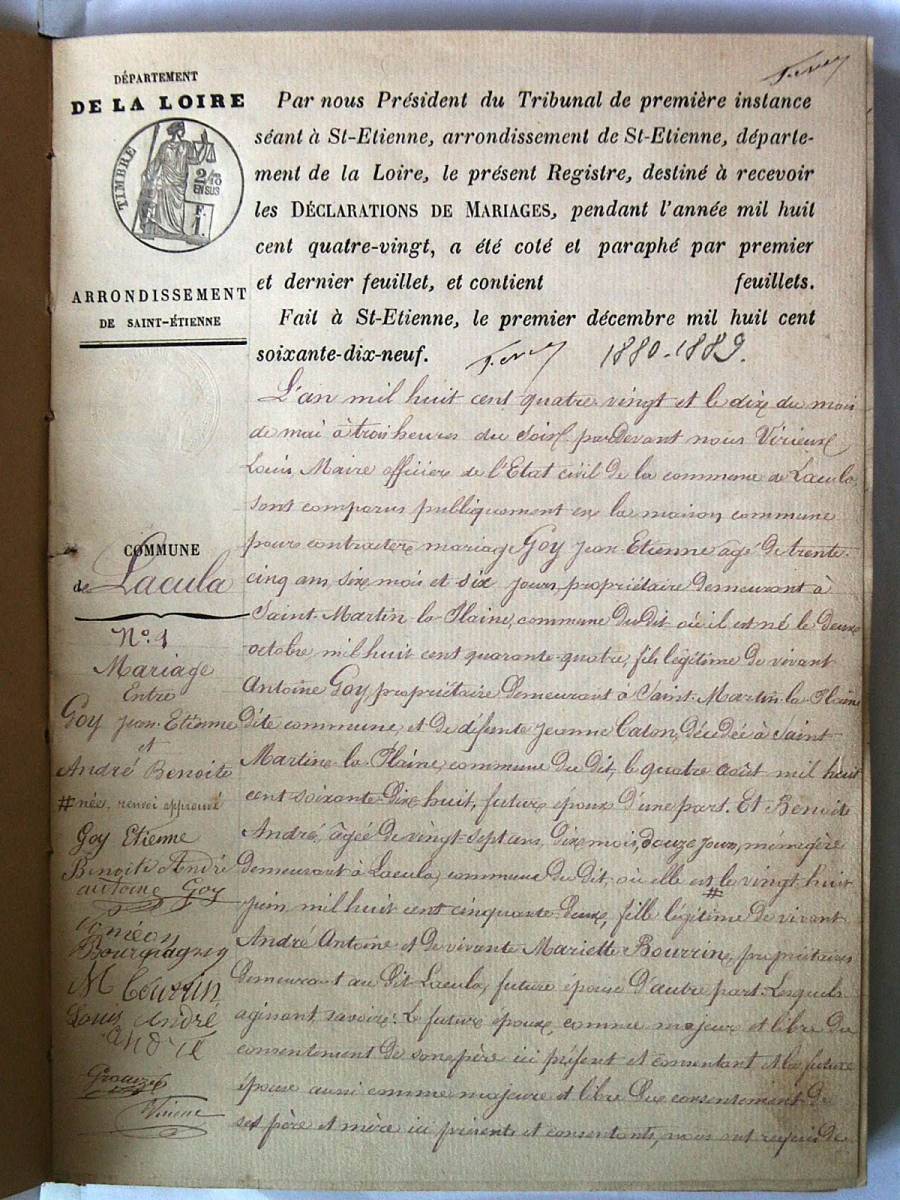 DÉPARTEMENT
DE LA LOIRE
TIMBRE
2/10
EN SUS
F.
1.
ARRONDISSEMENT
DE SAINT-ÉTIENNE
Par nous Président du Tribunal de première instance
séant à St-Etienne, arrondissement de St-Etienne, départe-
ment de la Loire, le présent Registre, destiné à recevoir
les DÉCLARATIONS DE MARIAGES, pendant l'année mil huit
cent quatre-vingt, a été coté et paraphé par premier
et dernier feuillet, et contient feuillets.
Fait à St-Etienne, le premier décembre mil huit cent
soixante-dix-neuf.
1880-1889.
COMMUNE
de Lacula
N° 1
Mariage
Entre
Goy Jean-Etienne
et
André Benoite
# née, renvoi approuvé
Goy Etienne
Benoite André
antoine Goy
Bourgagny
M Bourrin
Louis André
André
Virieux
L'an mil huit cent quatre-vingt et le dix du mois
de mai à trois heures du soir pardevant nous Virieux
Louis Maire officier de l'Etat civil de la commune de Lacula
sont comparus publiquement en la maison commune
pour contracter mariage Goy Jean-Etienne âgé de trente-
cinq ans six mois et six jours, propriétaire demeurant à
Saint-Martin-la-Plaine, commune du dit où il est né le deux
octobre mil huit cent quarante-quatre, fils légitime de vivant
Antoine Goy, propriétaire demeurant à Saint-Martin-la-Plaine
dite commune, et de défunte Jeanne Caton, décédée à Saint-
Martin-la-Plaine, commune du dit, le quatre août mil huit
cent soixante-dix-huit, futur époux d'une part. Et Benoite
André, âgée de vingt-sept ans, dix mois, douze jours, menagère
demeurant à Lacula, commune du dit, où elle est # le vingt-huit
juin mil huit cent cinquante-deux, fille légitime de vivant
André Antoine et de vivante Mariette Bourrin, propriétaires
demeurant au dit Lacula, future épouse d'autre part. Lesquels
agissant savoir: Le futur époux comme majeur et libre du
consentement de son père ici présent et consentant et la future
épouse aussi comme majeure et libre du consentement de
ses père et mère ici présents et consentants, nous ont requis de